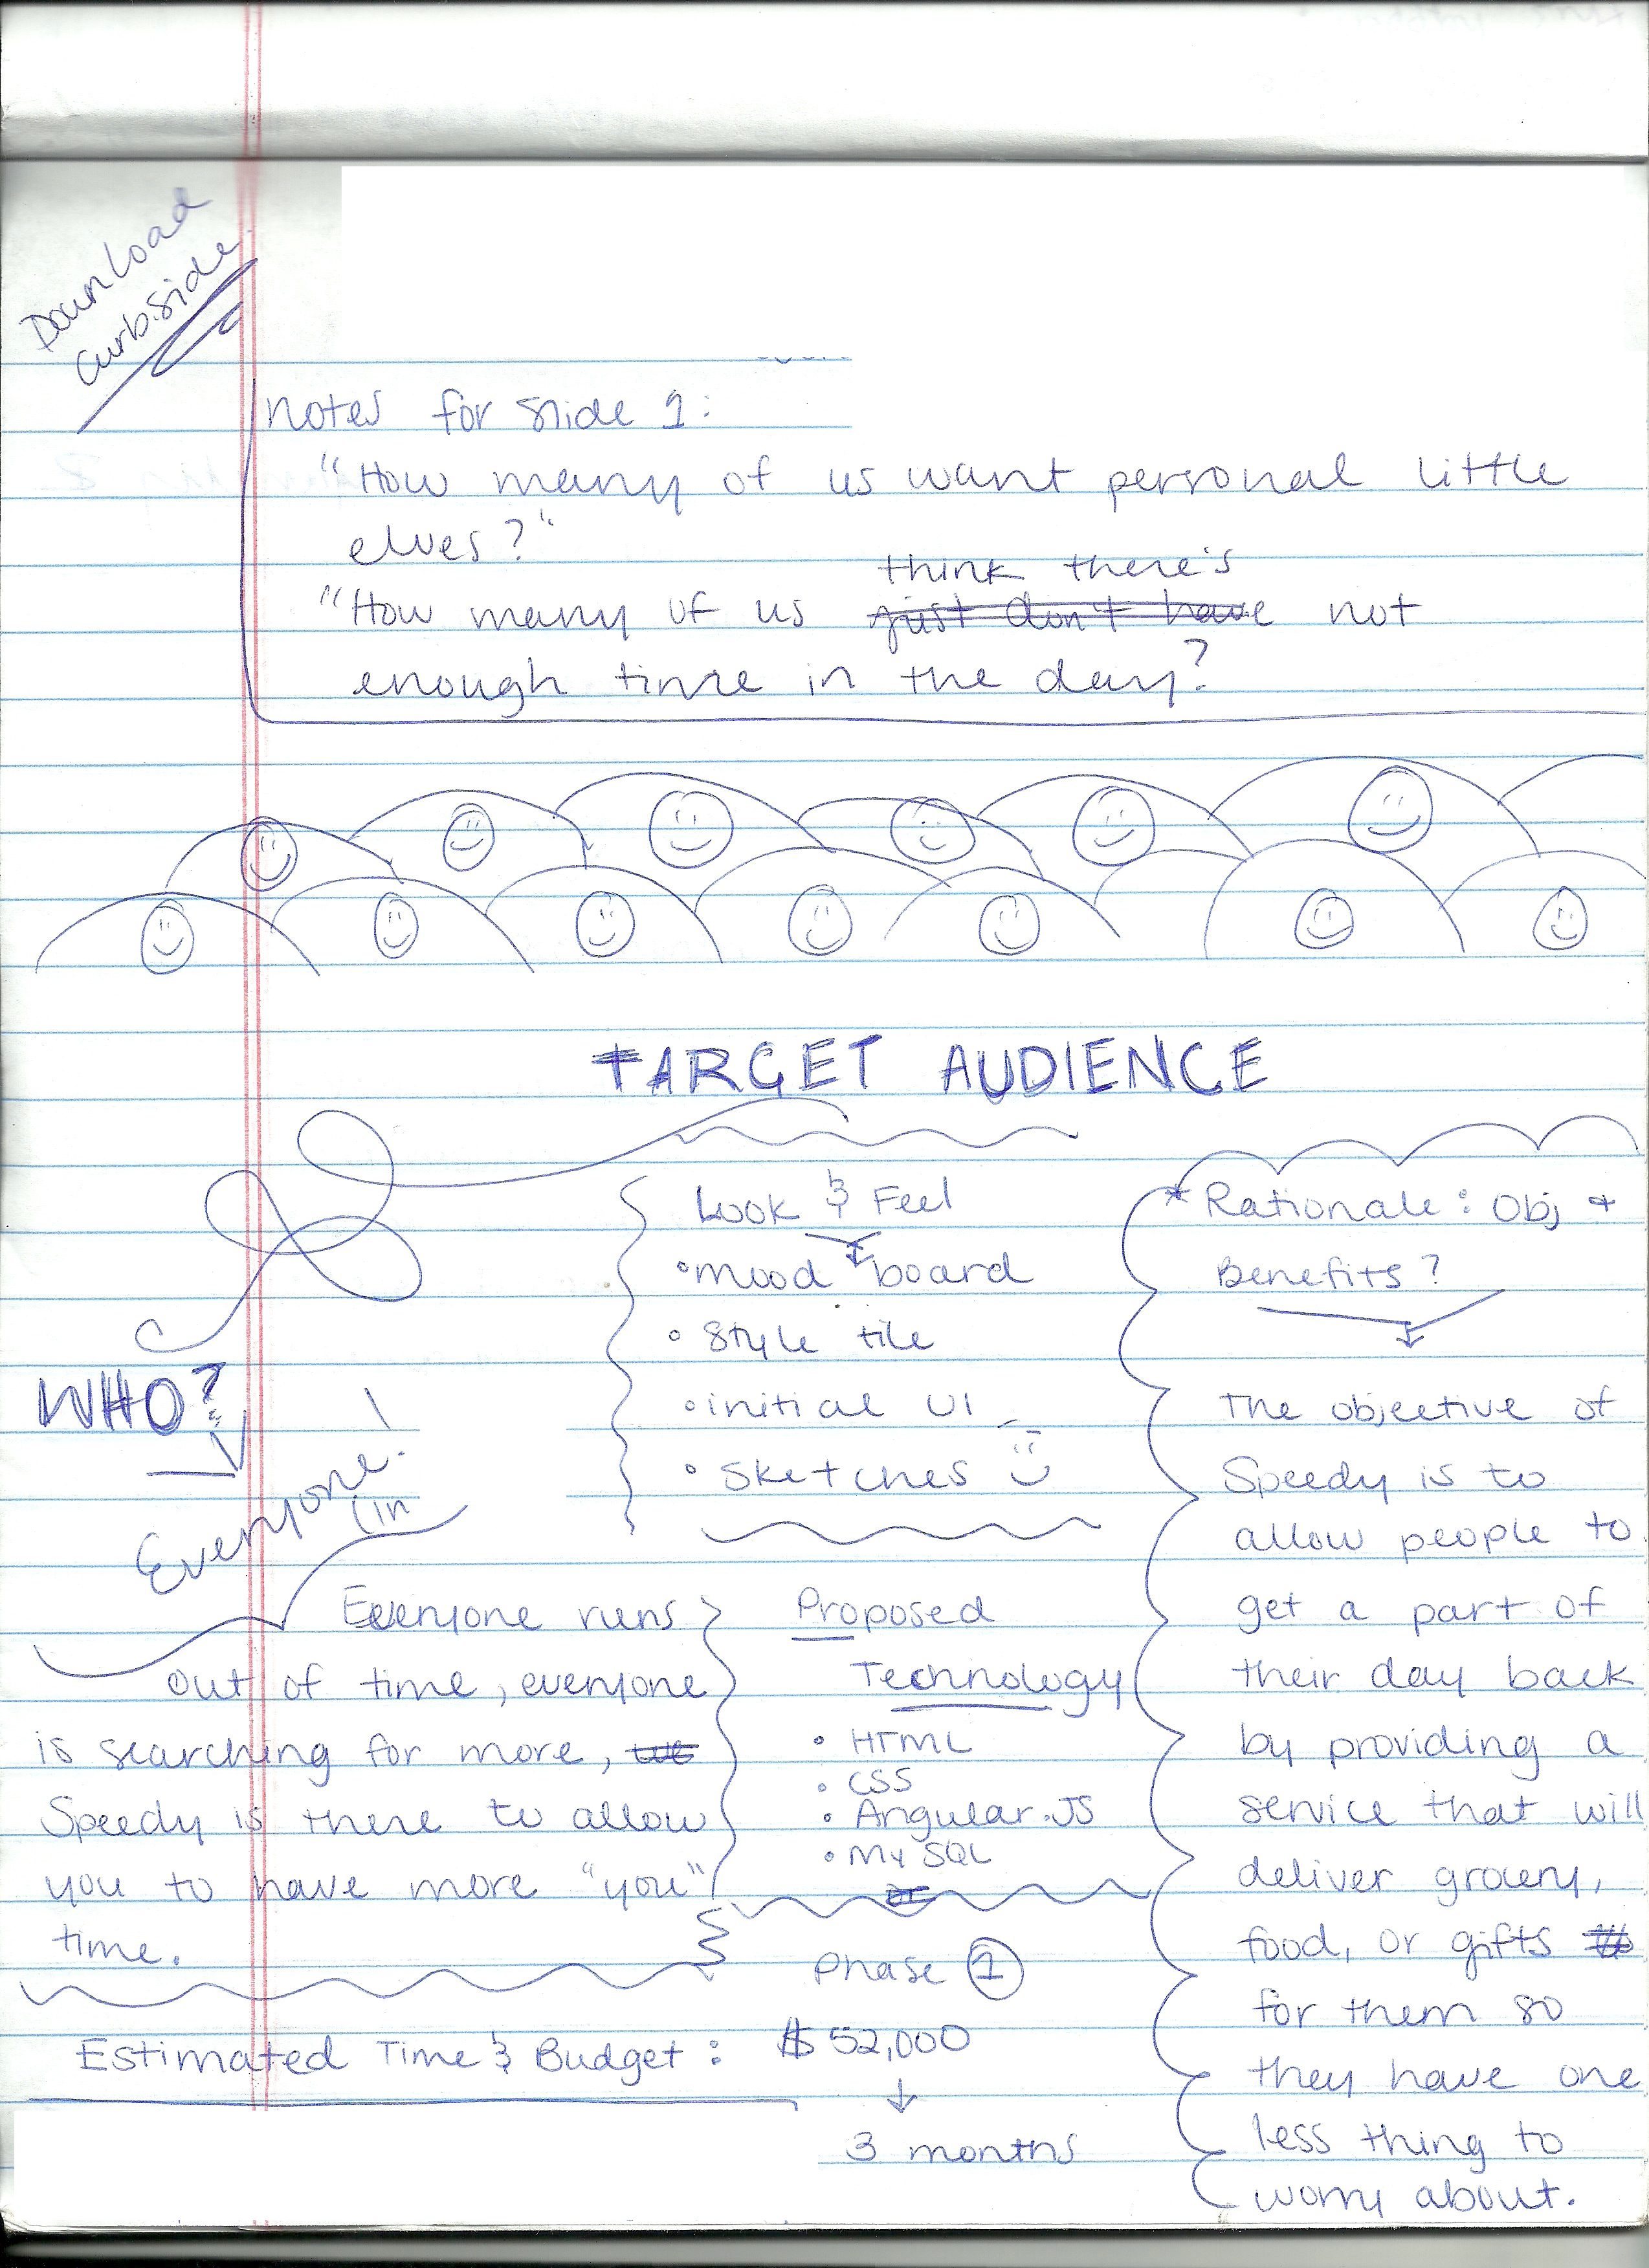 Download
Curbside
Notes for Slide 1:
"How many of us want personal little
elves?"
think there's
"How many of us just don't have not
enough time in the day?
TARGET AUDIENCE
WHO?
Everyone!
(in
Everyone runs
out of time, everyone
is searching for more,
Speedy is there to allow
you to have more "you"
time.
Look & Feel
• mood board
• Style tile
• initial UI
• Sketches
Proposed
Technology
• HTML
• CSS
• Angular.JS
• MySQL
Phase 1
Estimated Time & Budget: $52,000
3 months
* Rationale: Obj +
Benefits?
The objective of
Speedy is to
allow people to
get a part of
their day back
by providing a
service that will
deliver grocery,
food, or gifts
for them so
they have one
less thing to
worry about.